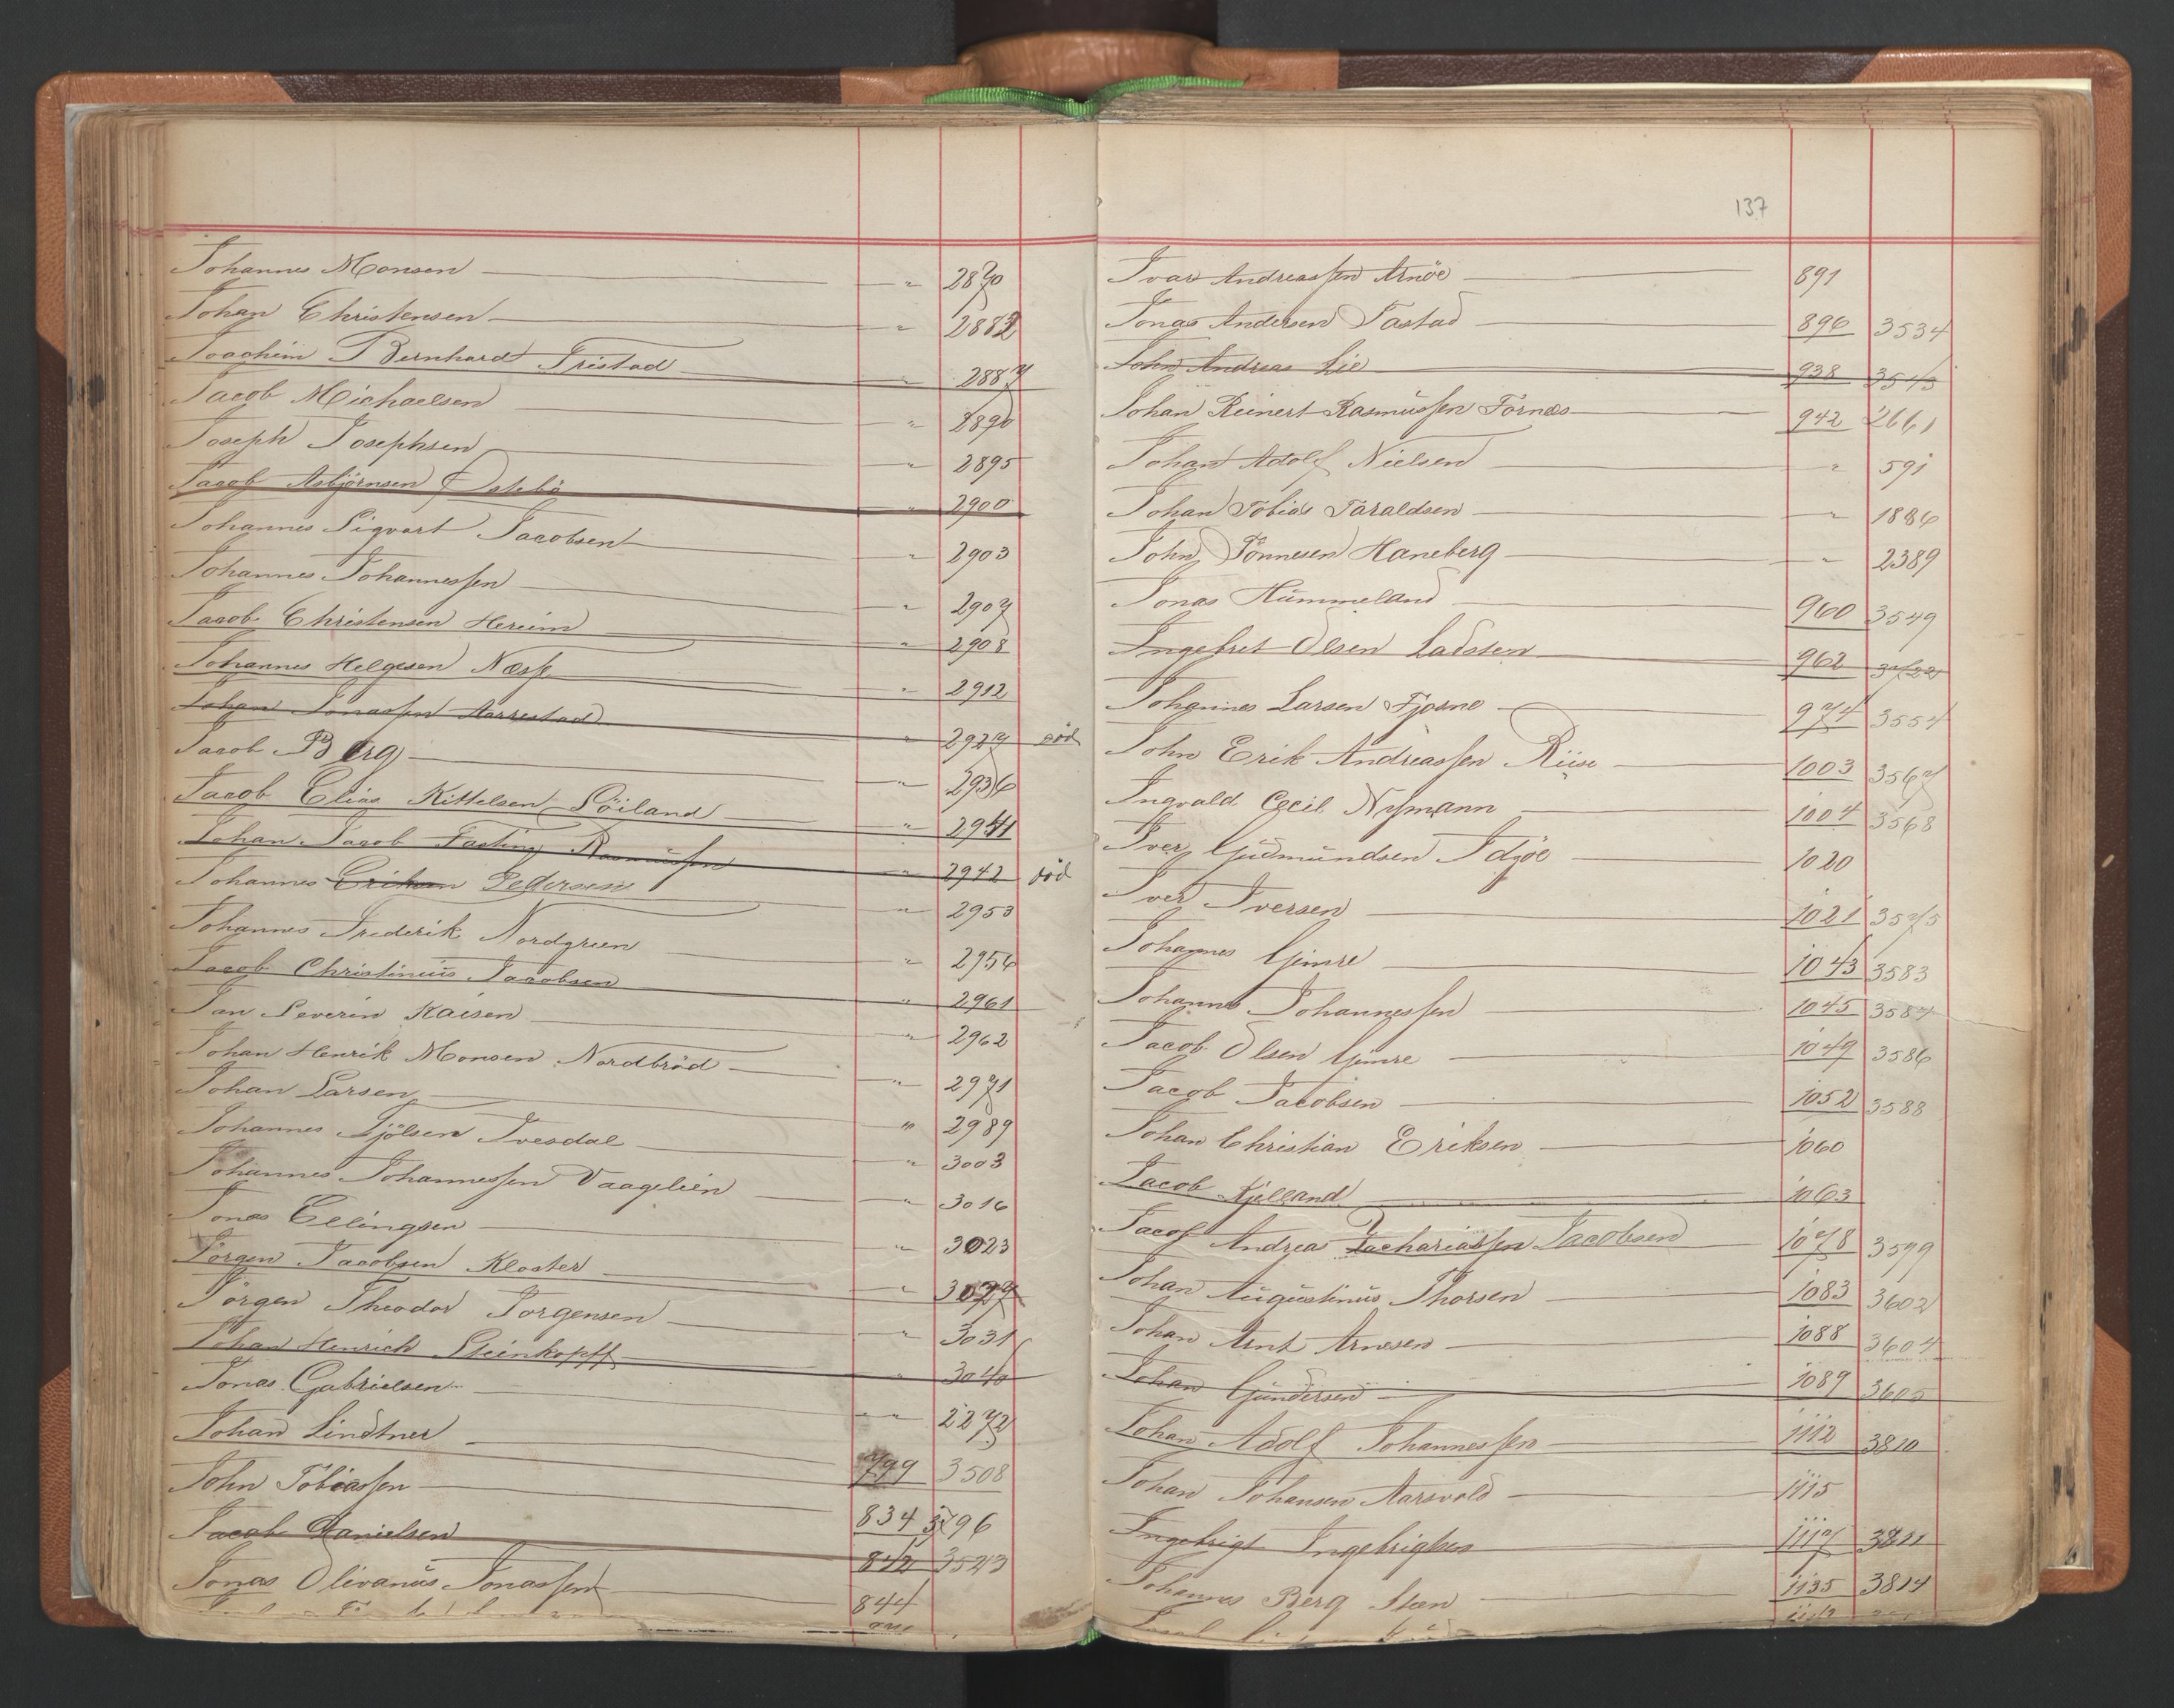 Johannes Monsen " 2870
Johan Christensen " 2882
Joachim Bernhard Tristad " 2887
Jacob Michaelsen " 2890
Joseph Josephsen " 2895
Jacob Asbjørnsen Østebø " 2900
Johannes Sigvart Jacobsen " 2903
Johannes Johannessen " 2907
Jacob Christensen Hereim " 2908
Johannes Helgesen Næss " 2912
Johan Jonassen Aarrestad " 2927 død
Jacob Berg " 2936
Jacob Elias Kittelsen Löiland " 2941
Johan Jacob Fasting Rasmussen " 2942 død
Johannes Eriksen Pedersen " 2953
Johannes Frederik Nordgreen " 2956
Jacob Christinius Jacobsen " 2961
Jan Severin Kaisen " 2962
Johan Henrik Monsen Nordbröd " 2971
Johan Larsen " 2989
Johannes Tjölsen Ivesdal " 3003
Johannes Johannessen Vaagelien " 3016
Jonas Ellingsen " 3023
Jörgen Jacobsen Kloster " 3027
Jörgen Theodor Jorgensen " 3031
Johan Henrich Steinkopff " 3040
Jonas Gabrielsen " 2272
Johan Lindtner 799 3508
John Tobiassen 834 3796
Jacob Danielsen 842 3523
Jonas Olivanus Jonassen 844
137
Ivar Andreassen Arnöe 891
Jonas Andersen Tastad 896 3534
John Andreas Lie 938 3543
Johan Reinert Rasmussen Fornæs 942 2661
Johan Adolf Nielsen " 591
Johan Tobias Taraldsen " 1886
John Tönnesen Haneberg " 2389
Jonas Hummeland 960 3549
Ingebret Olsen Ladsten 962
Johannes Larsen Fjosne 974 3554
John Erik Andreassen Riise 1003 3567
Ingvald Cecil Nymann 1004 3568
Iver Gudmundsen Idsöe 1020
Iver Iversen 1021 3575
Johannes Gimre 1043 3583
Johannes Johannessen 1045 3584
Jacob Olsen Gimre 1049 3586
Jacob Jacobsen 1052 3588
Johan Christian Eriksen 1060
Jacob Kjelland 1063
Jacob Andreas Zachariassen Jacobsen 1078 3599
Johan Augustinus Thorsen 1083 3602
Johan Arnt Arnesen 1088 3604
Johan Gundersen 1089 3605
Johan Adolf Johannessen 1112 3810
Johan Johansen Aarsvold 1115
Ingebrigt Ingebrigtsen 1117 3811
Johannes Berg Steen 1135 3814